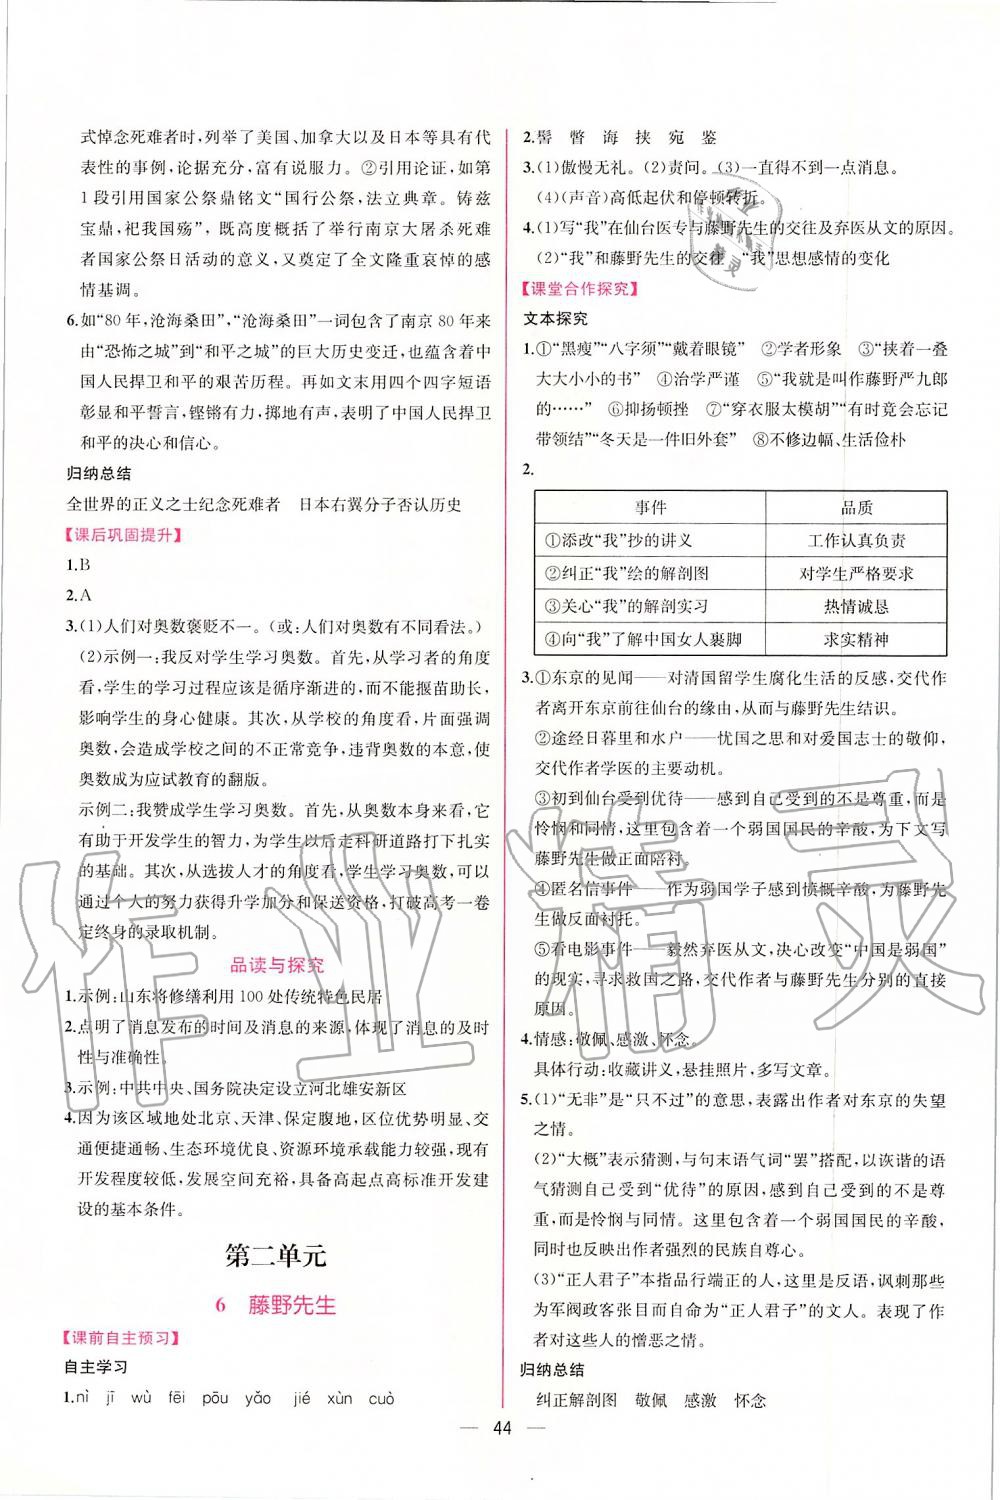 式悼念死难者时,列举了美国、加拿大以及日本等具有代
表性的事例,论据充分,富有说服力。②引用论证,如第
1段引用国家公祭鼎铭文“国行公祭,法立典章。铸兹
宝鼎,祀我国殇”,既高度概括了举行南京大屠杀死难
者国家公祭日活动的意义,又奠定了全文隆重哀悼的感
情基调。
6.如“80年,沧海桑田”,“沧海桑田”一词包含了南京80年来
由“恐怖之城”到“和平之城”的巨大历史变迁,也蕴含着中
国人民捍卫和平的艰苦历程。再如文末用四个四字短语
彰显和平誓言,铿锵有力,掷地有声,表明了中国人民捍卫
和平的决心和信心。
归纳总结
全世界的正义之士纪念死难者 日本右翼分子否认历史
【课后巩固提升】
1.B
2.A
3.(1)人们对奥数褒贬不一。(或:人们对奥数有不同看法。)
(2)示例一:我反对学生学习奥数。首先,从学习者的角度
看,学生的学习过程应该是循序渐进的,而不能揠苗助长,
影响学生的身心健康。其次,从学校的角度看,片面强调
奥数,会造成学校之间的不正常竞争,违背奥数的本意,使
奥数成为应试教育的翻版。
示例二:我赞成学生学习奥数。首先,从奥数本身来看,它
有助于开发学生的智力,为学生以后走科研道路打下扎实
的基础。其次,从选拔人才的角度看,学生学习奥数,可以
通过个人的努力获得升学加分和保送资格,打破高考一卷
定终身的录取机制。
品读与探究
1.示例:山东将修缮利用100处传统特色民居
2.点明了消息发布的时间及消息的来源,体现了消息的及时
性与准确性。
3.示例:中共中央、国务院决定设立河北雄安新区
4.因为该区域地处北京、天津、保定腹地,区位优势明显、交
通便捷通畅、生态环境优良、资源环境承载能力较强,现有
开发程度较低,发展空间充裕,具备高起点高标准开发建
设的基本条件。
第二单元
6 藤野先生
【课前自主预习】
自主学习
1.nì jī wù fēi pōu yǎo jié xùn cuò
2.髻 瞥 诲 挟 宛 鉴
3.(1)傲慢无礼。(2)责问。(3)一直得不到一点消息。
(4)(声音)高低起伏和停顿转折。
4.(1)写“我”在仙台医专与藤野先生的交往及弃医从文的原因。
(2)“我”和藤野先生的交往 “我”思想感情的变化
【课堂合作探究】
文本探究
1.①“黑瘦”“八字须”“戴着眼镜” ②学者形象 ③“挟着一叠
大大小小的书” ④治学严谨 ⑤“我就是叫作藤野严九郎
的……” ⑥抑扬顿挫 ⑦“穿衣服太模胡”“有时竟会忘记
带领结”“冬天是一件旧外套” ⑧不修边幅、生活俭朴
2.
事件 品质
①添改“我”抄的讲义 工作认真负责
②纠正“我”绘的解剖图 对学生严格要求
③关心“我”的解剖实习 热情诚恳
④向“我”了解中国女人裹脚 求实精神
3.①东京的见闻——对清国留学生腐化生活的反感,交代作
者离开东京前往仙台的缘由,从而与藤野先生结识。
②途经日暮里和水户——忧国之思和对爱国志士的敬仰,
交代作者学医的主要动机。
③初到仙台受到优待——感到自己受到的不是尊重,而是
怜悯和同情,这里包含着一个弱国国民的辛酸,为下文写
藤野先生做正面陪衬。
④匿名信事件——作为弱国学子感到愤慨辛酸,为藤野先
生做反面衬托。
⑤看电影事件——毅然弃医从文,决心改变“中国是弱国”
的现实,寻求救国之路,交代作者与藤野先生分别的直接
原因。
4.情感:敬佩、感激、怀念。
具体行动:收藏讲义,悬挂照片,多写文章。
5.(1)“无非”是“只不过”的意思,表露出作者对东京的失望
之情。
(2)“大概”表示猜测,与句末语气词“罢”搭配,以诙谐的语
气猜测自己受到“优待”的原因,感到自己受到的不是尊
重,而是怜悯与同情。这里包含了一个弱国国民的辛酸,
同时也反映出作者强烈的民族自尊心。
(3)“正人君子”本指品行端正的人,这里是反语,讽刺那些
为军阀政客张目而自命为“正人君子”的文人。表现了作
者对这些人的憎恶之情。
归纳总结
纠正解剖图 敬佩 感激 怀念
— 44 —
作业精灵